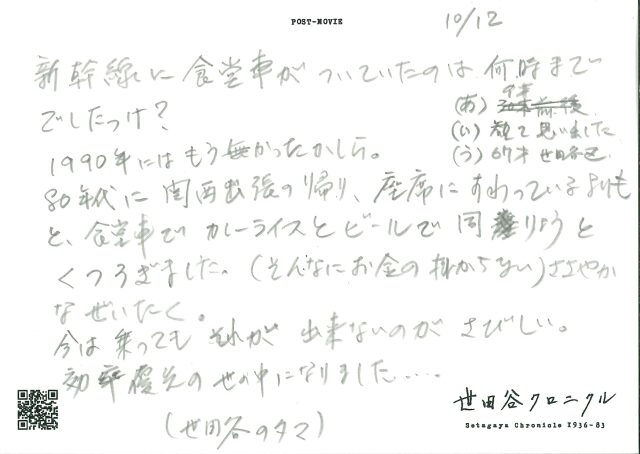 POST-MOVIE
10/12
新幹線に食堂車がついていたのは何時まで
でしたっけ?
(あ)
(い) 観て思いました
(う) 67才 世田谷区
1990年にはもう無かったかしら。
80年代に関西出張の帰り、座席にすわっているよりも
と、食堂車でカレーライスとビールで同りょうと
くつろぎました。(そんなにお金の掛からない)ささやか
なぜいたく。
今は乗ってもそれが出来ないのがさびしい。
効率優先の世の中になりました....
(世田谷のタマ)
世田谷クロニクル
Setagaya Chronicle 1936-83